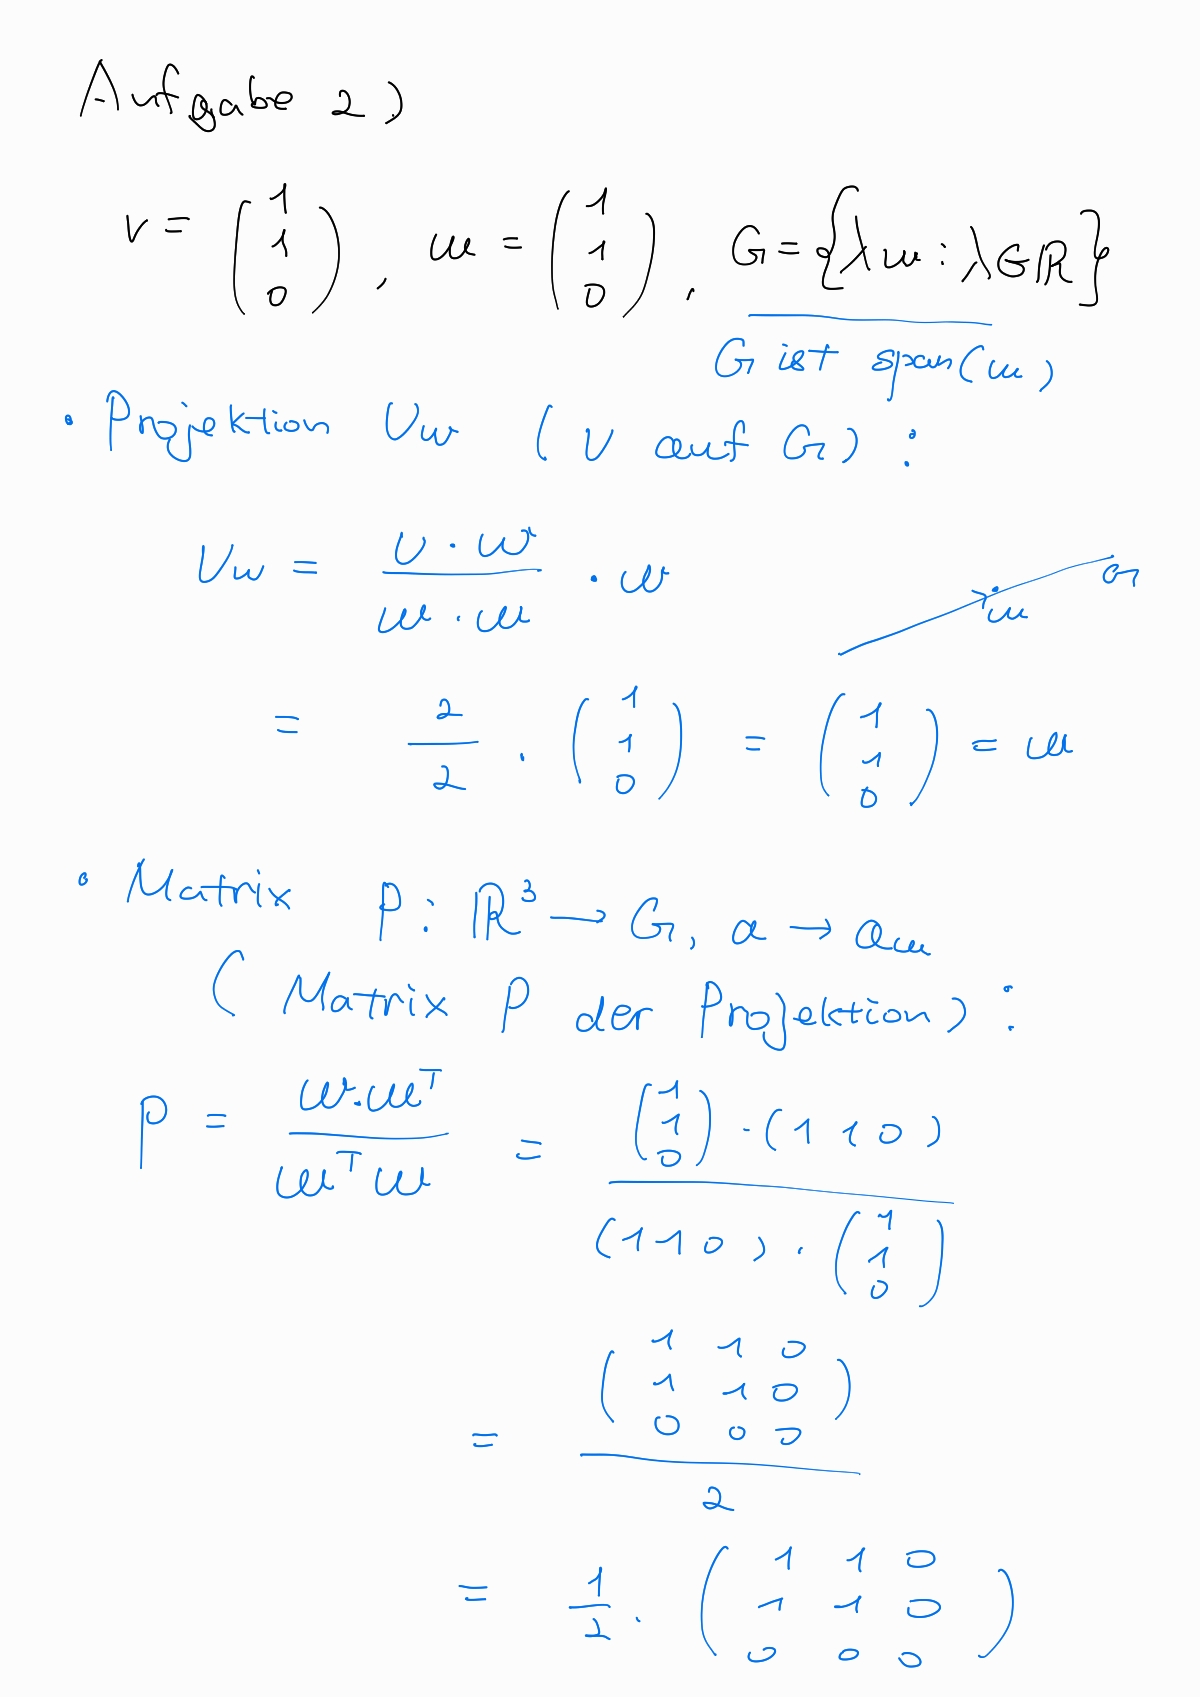 Aufgabe 2)
v = (1 1 0), w = (1 1 0), G = {λw : λ ∈ ℝ}
G ist span(w)
• Projektion v_w (v auf G) :
v_w = (v · w)/(w · w) · w
G
w
= 2/2 · (1 1 0) = (1 1 0) = w
• Matrix P : ℝ³ → G, a → a_w
(Matrix P der Projektion) :
P = (w · wᵀ)/(wᵀ w) = ((1 1 0) · (1 1 0))/((1 1 0) · (1 1 0))
= (1 1 0
1 1 0
0 0 0)/2
= 1/2 · (1 1 0
1 1 0
0 0 0)